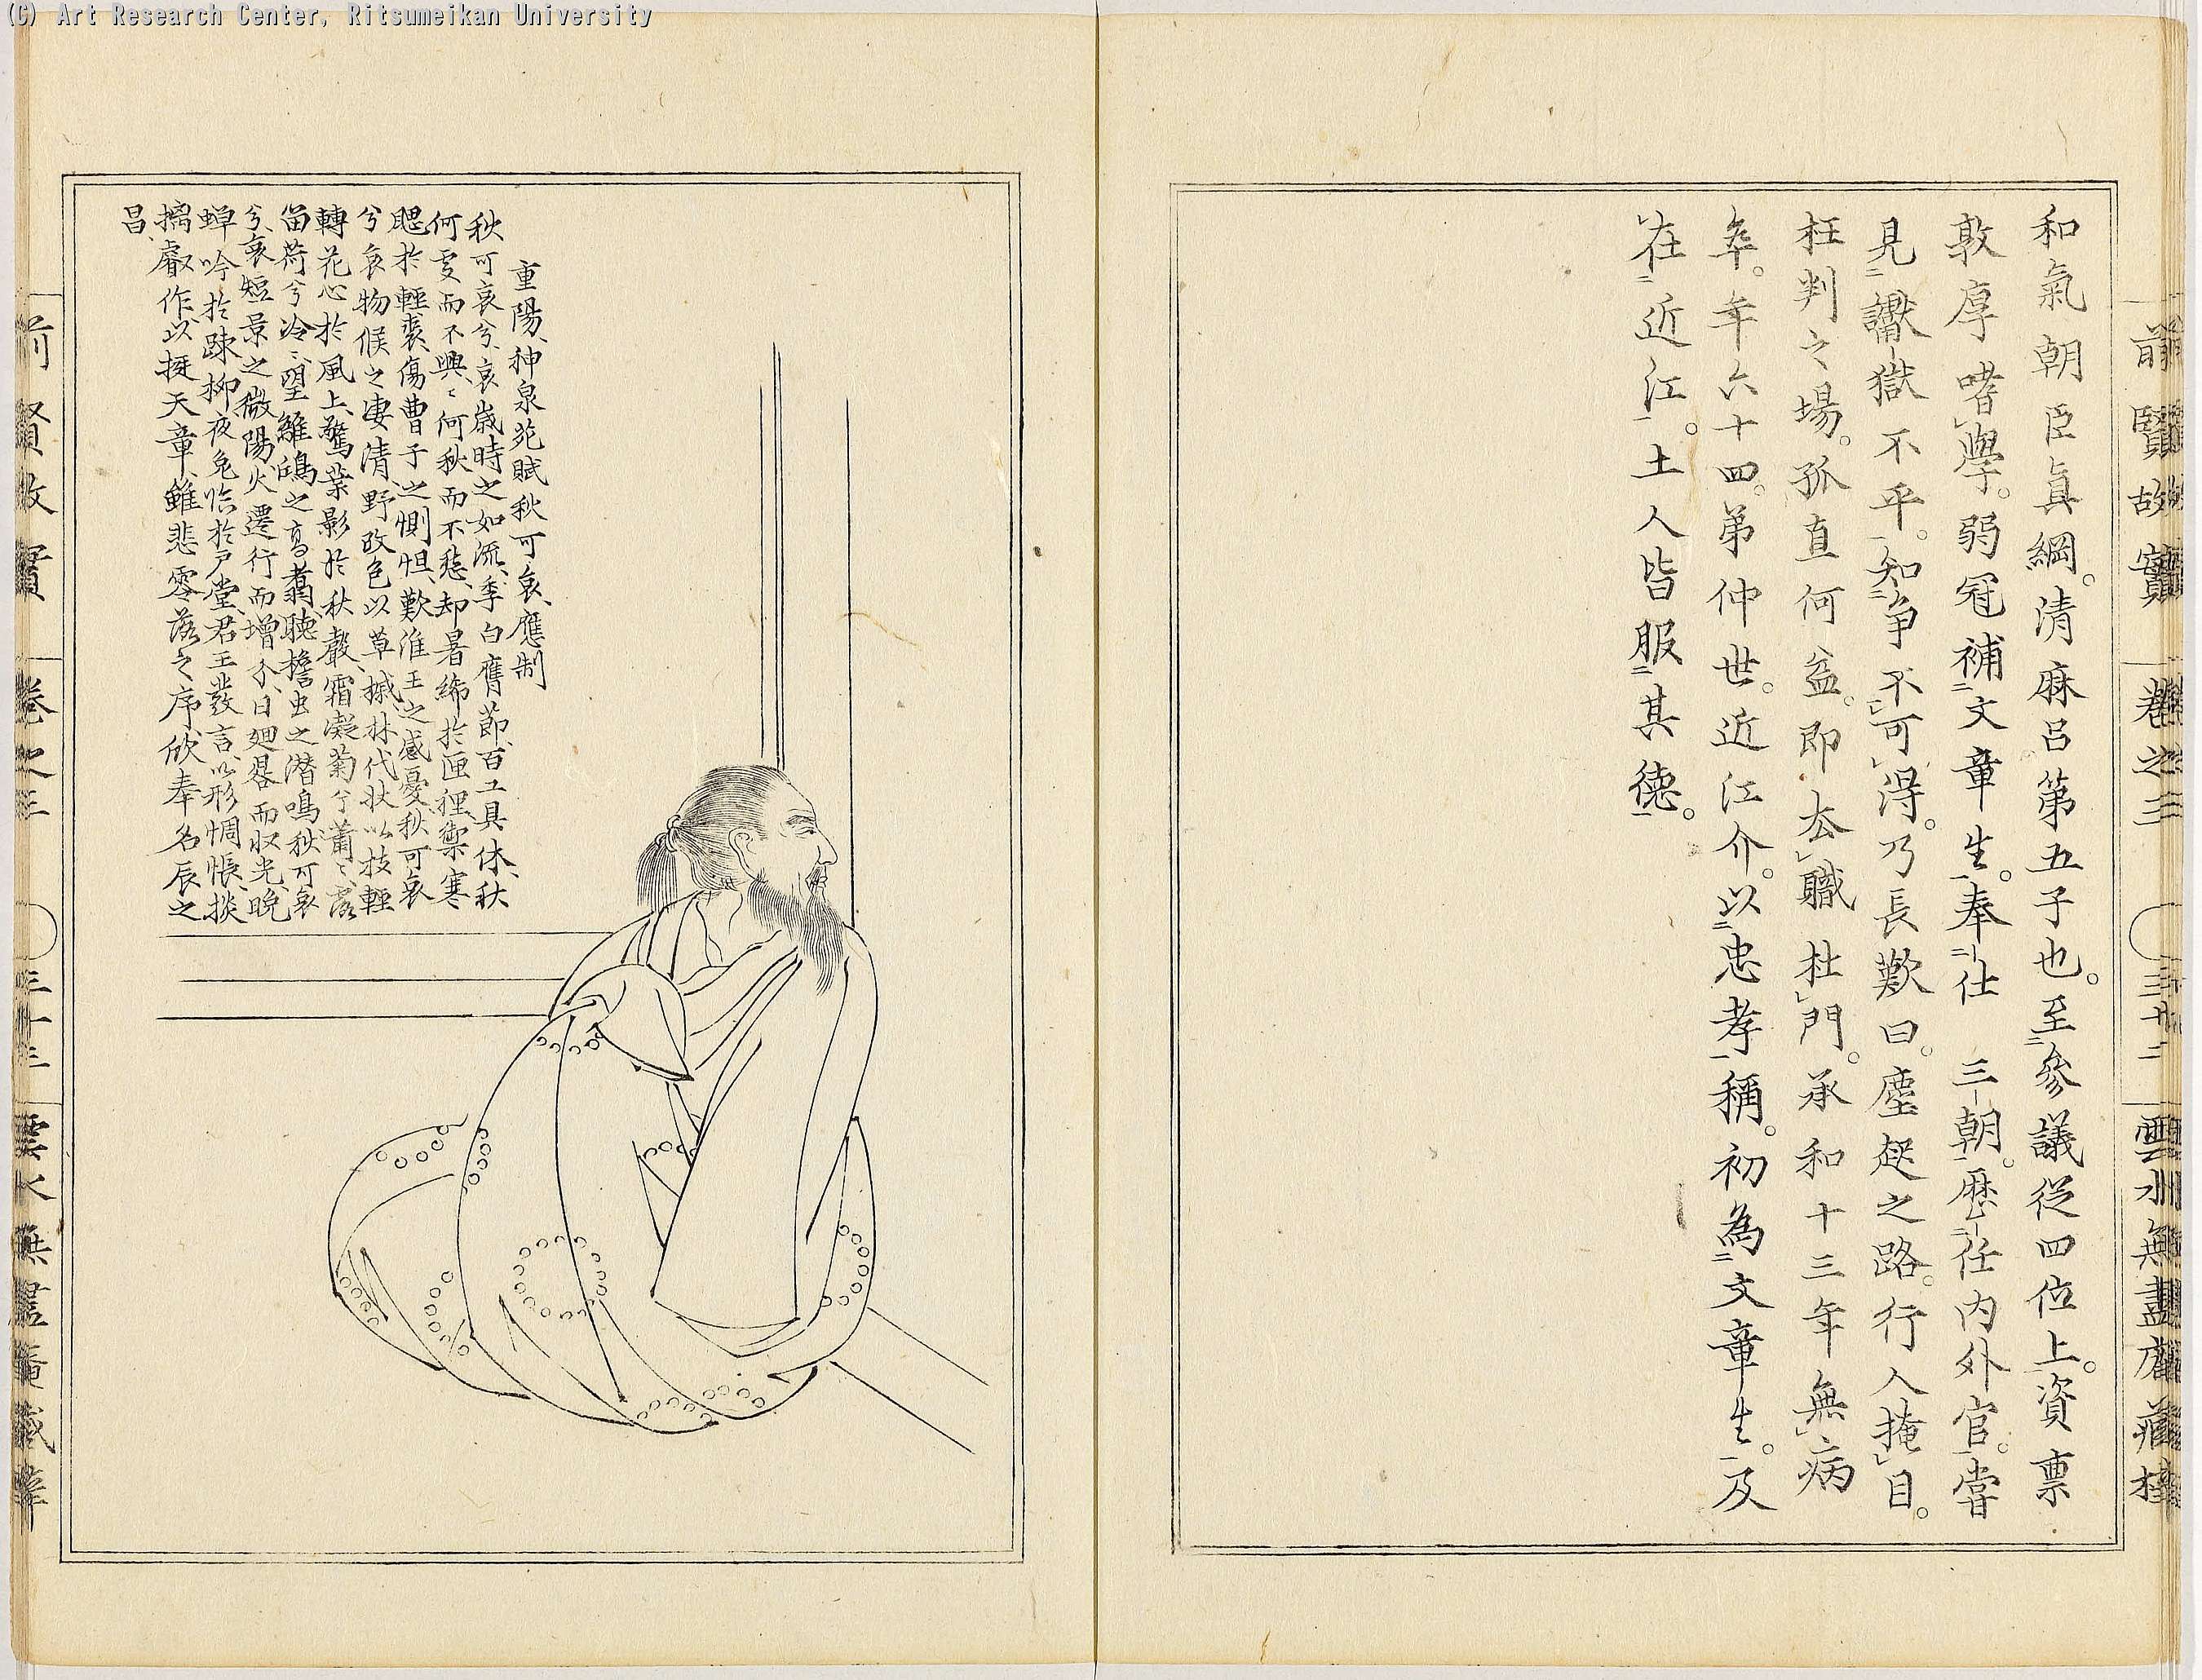 (C) Art Research Center, Ritsumeikan University
前賢故實 卷之三 三十二 雲水無盡庵藏梓
和氣朝臣眞綱。清麻呂第五子也。至二參議從四位上一。資稟
敦厚嗜レ學。弱冠補二文章生一。奉二仕 三朝一。歷二任内外官一。嘗
見二讞獄不平一。知二爭不一レ可レ得。乃長歎曰。塵起之路。行人掩レ目。
枉判之場。孤直何益。即去レ職杜レ門。承和十三年無レ病
卒。年六十四。弟仲世。近江介。以二忠孝一稱。初為二文章生一。及
レ在二近江一。土人皆服二其德一。
重陽、神泉苑賦秋可哀、應制
秋可哀兮、哀歲時之如流、季白膺節、百工具休、秋
何雯而不興、何秋而不愁、却暑絺於匣裡、禦寒
颸於輕裘、傷曹子之惻怛、歎淮王之感憂、秋可哀
兮、哀物候之凄清、野改色以草摵、林代狀以枝輕
轉花心於風上、驚葉影於秋聲、霜凝菊兮蕭ゝ、露
留荷兮冷ゝ、望離鴻之高翥、聽檐虫之潛鳴、秋可哀
兮、哀短景之微陽、火遷行而增分、日廻晷而収光、晩
蟬吟於疎柳、夜兔臨於戶堂、君王發言、以形惆悵、掞
摛睿作以挺天章、雖悲零落之序、欣奉名辰之
昌、
前賢故實 卷之三 三十三 雲水無盡庵藏梓